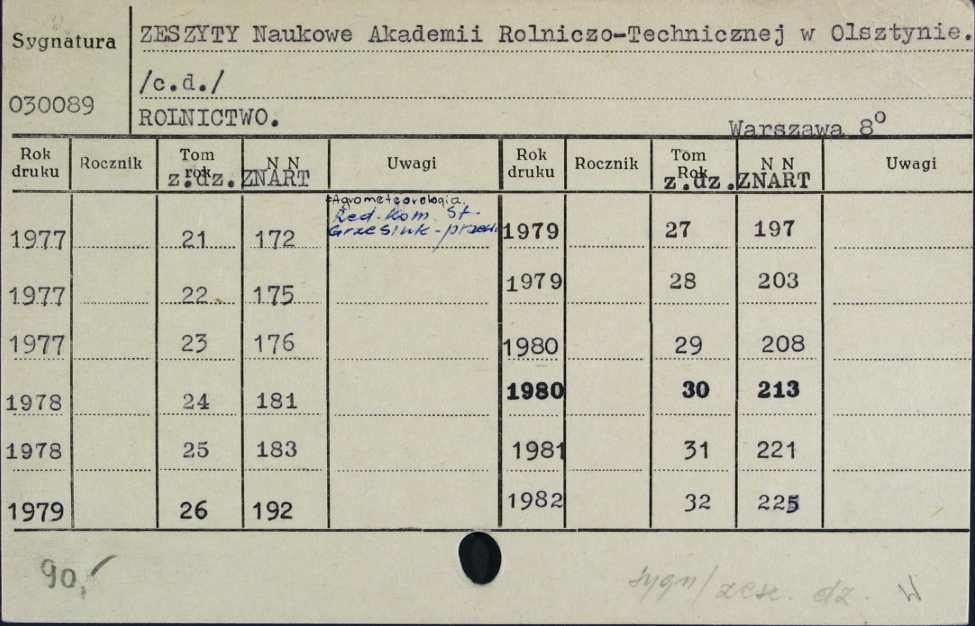 Sygnatura
ZESZYTY Naukowe Akademii Rolniczo-Technicznej w Olsztynie.
/c.d./
030089
ROLNICTWO.
Warszawa 8°
Rok druku Rocznik Tom rok N N Uwagi Rok druku Rocznik Tom Rok N N Uwagi
z.dz. ZNART z.dz. ZNART
Agrometeorologia.
Red. Kom. St.
1977 21 172 Grzesiuk - 1979 27 197
1977 22 175 1979 28 203
1977 23 176 1980 29 208
1978 24 181 1980 30 213
1978 25 183 1981 31 221
1979 26 192 1982 32 225
90,-
sygn/zesz. dz. W